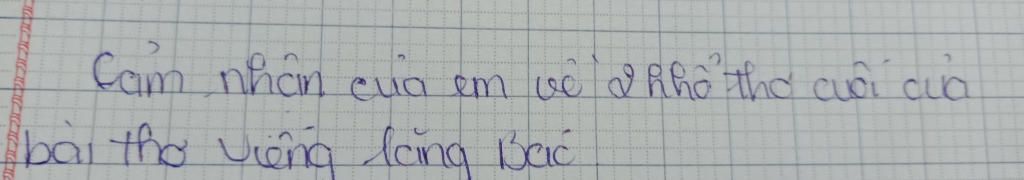 Cảm nhận của em về 2 khổ thơ cuối của
bài thơ Viếng lăng Bác